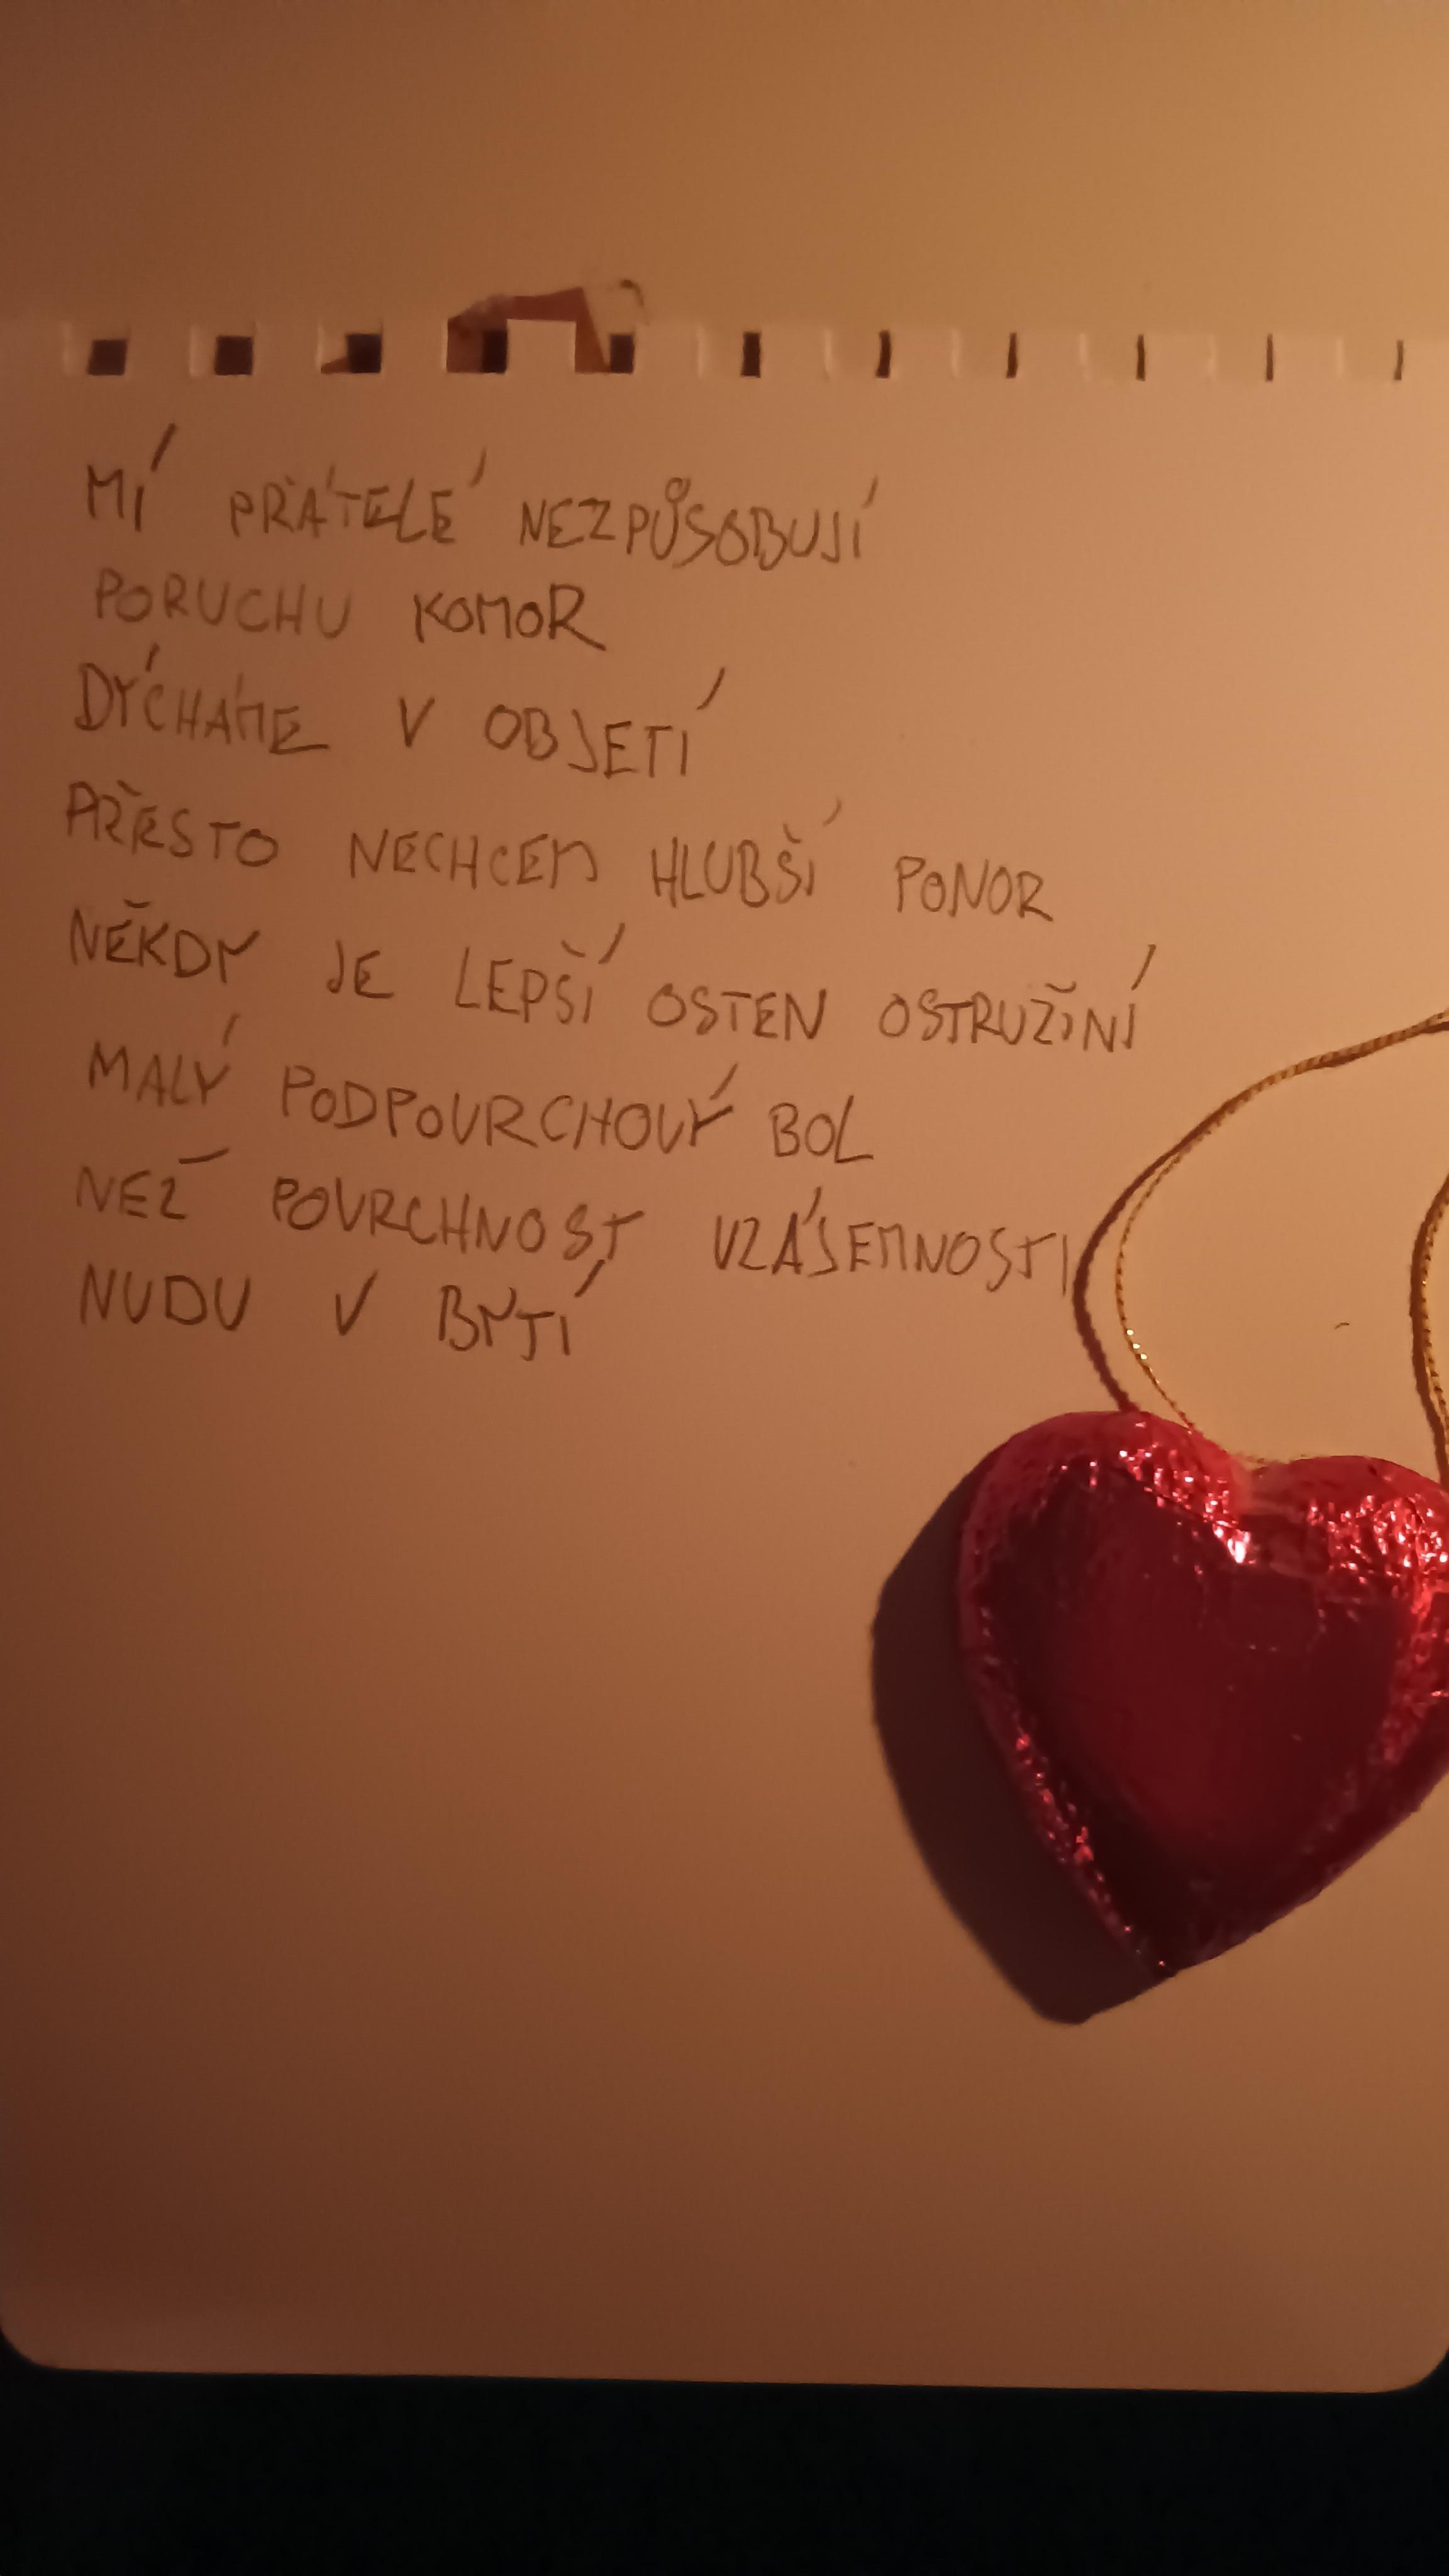 MÍ PŘÁTELÉ NEZPŮSOBUJÍ
PORUCHU KOMOR
DÝCHÁME V OBJETÍ
PŘESTO NECHCEM HLUBŠÍ PONOR
NĚKDY JE LEPŠÍ OSTEN OSTRUŽINÍ
MALÝ PODPOVRCHOVÝ BOL
NEŽ POVRCHNOST VZÁJEMNOSTI
NUDU V BYTÍ